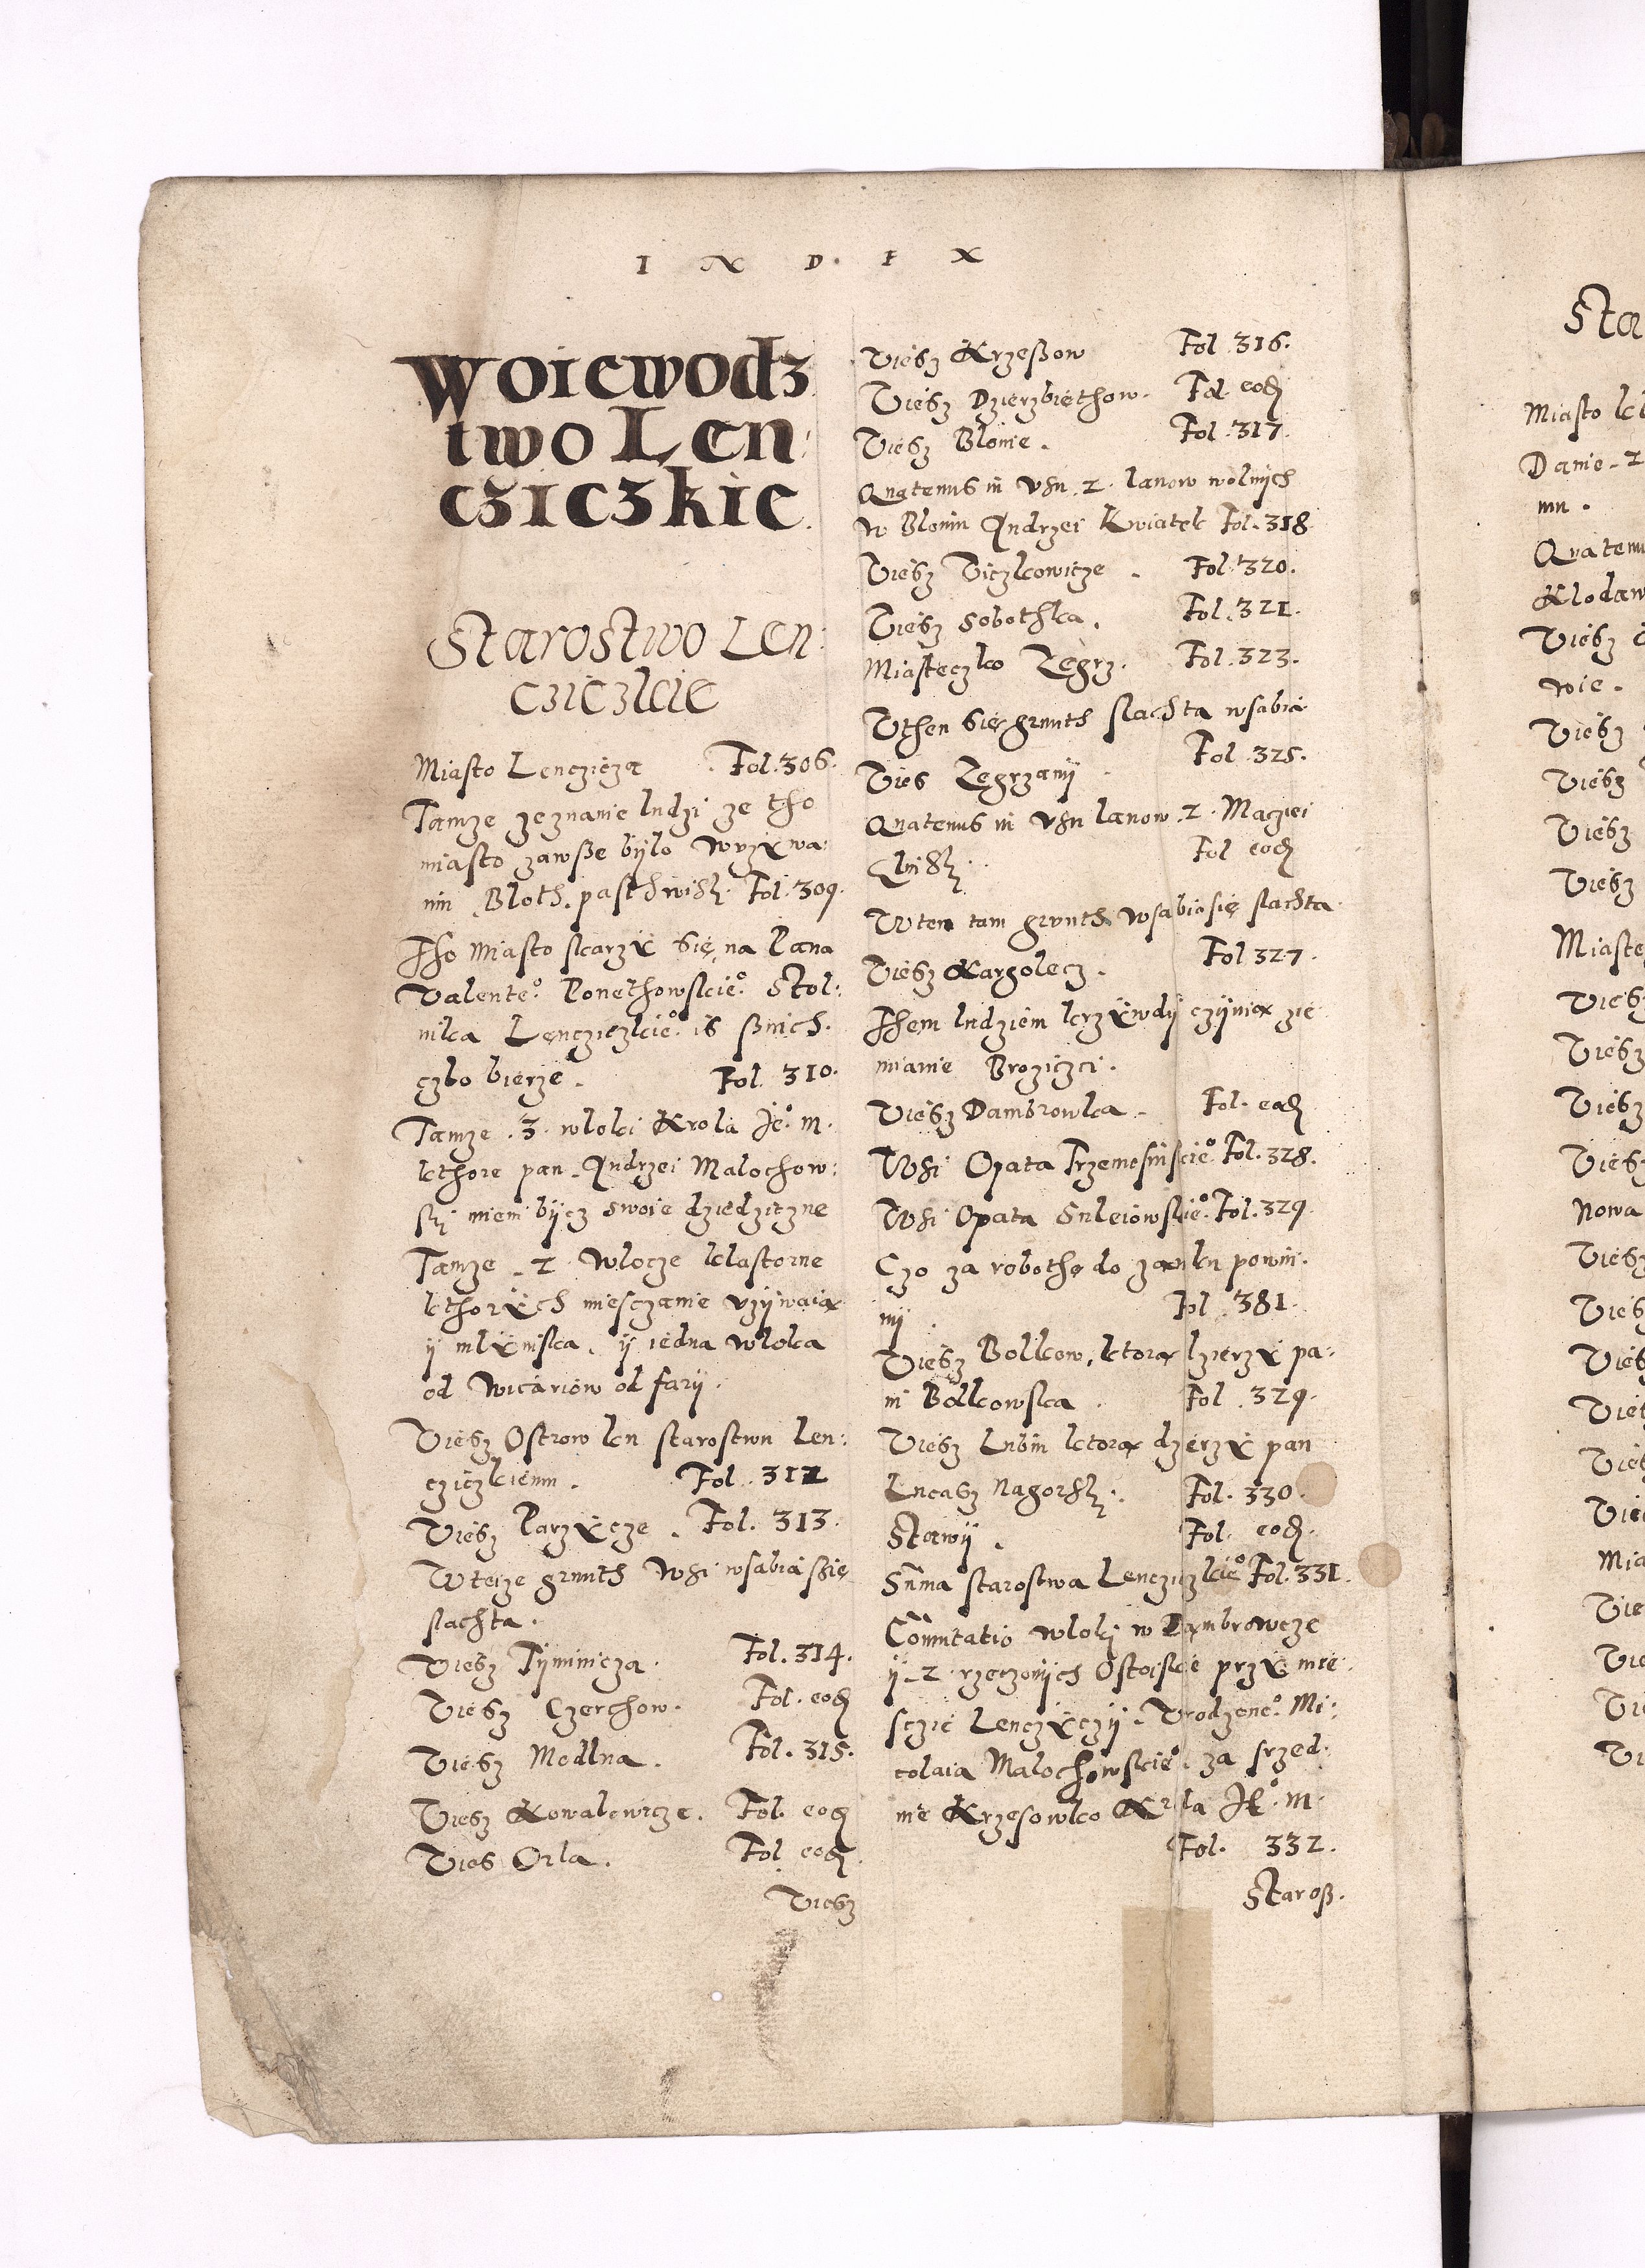 I N D E X
Woiewodz
two Len
cziczkie
Starostwo Len:
cziczkie
Miasto Lenczicza . Fol. 306.
Tamze zeznanie ludzi ze tho
miasto zawsße bylo w vzÿwa:
niu Bloth. pasthwisk. Fol. 309.
Tho Miasto skarzÿ się na Pana
Valenteo. Ponethowskieo. Stol:
nika Lencziczkieo. is
bierze. Fol. 310.
Tamze . 3. wloki Krola Jeo. m.
kthore pan Andrzei Malochow:
ski mieni bÿcz swoie dziedziczne
Tamze . 2. Wlocze klastorne
kthorÿch miesczanie vzÿwaią
ÿ mlÿniska, ÿ iedna wloka
od Wicariow od farÿ.
Viesz Ostrow ku starostwu Len:
cziczkiemu. Fol. 312
Viesz Parzÿcze . Fol. 313.
W teize grunth Wsi wsabia ssię
slachta.
Viesz Tÿminicza. Fol. 314.
Viesz Czerchow. Fol. eod
Viesz Modlna. Fol. 315.
Viesz Kowalewicze. Fol. eod
Vies Orla. Fol. eod
Viesz
Viesz Krzeßow Fol. 316.
Viesz Dzierzbiethow. Fol. eod
Viesz Blonie. Fol. 317.
Quatenus in vsu . 2. lanow wolnÿch
w Bloniu Andrzei Kwiatek Fol. 318
Viesz Viczkowicze . Fol. 320.
Viesz Sobothka. Fol. 321.
Miasteczko Zegrz. Fol. 323.
Vthen się grunth slachta wsabia
Fol. 325.
Vies Zegrzanÿ .
Quatenus in vsu lanow . 2. Maciei
Fol eod
W ten tam grunth wsabia się slachta
Viesz Kargolecz. Fol 327.
Them ludziem krzÿwdÿ czÿnią zie
mianie
Viesz Dambrowka. Fol. eod
Wsi Opata Trzemesinskieo. Fol. 328.
Wsi Opata Suleiowskieo. Fol. 329.
Czo za robothę do zamku powin.
ni . Fol. 381.
Viesz Bolkow, ktorą dzierzÿ pa:
ni Bolkowska . Fol. 329.
Viesz Lubin ktorą dzierzÿ pan
Lucasz Nagorsky. Fol. 330.
Stawÿ. Fol. eod.
Suma starostwa Lencziczkieo Fol. 331.
Commutatio wloki w Dambrowcze
ÿ . 2. rzeczonÿch Ostoiskie przÿ mie
sczie LenczÿczÿVrodzoneo. Mi:
colaia Malochowskieo. za srzed:
nie Krzesowko Krola Jeo. m.
Fol. 332.
Staroß.
Sta
Miasto
Danie . 2
mu.
Quatenu
Klodaw
Viesz
wie.
Viesz
Viesz
Viesz
Viesz
Miaste
Viesz
Viesz
Viesz
Viesz
Nowa
Viesz
Viesz